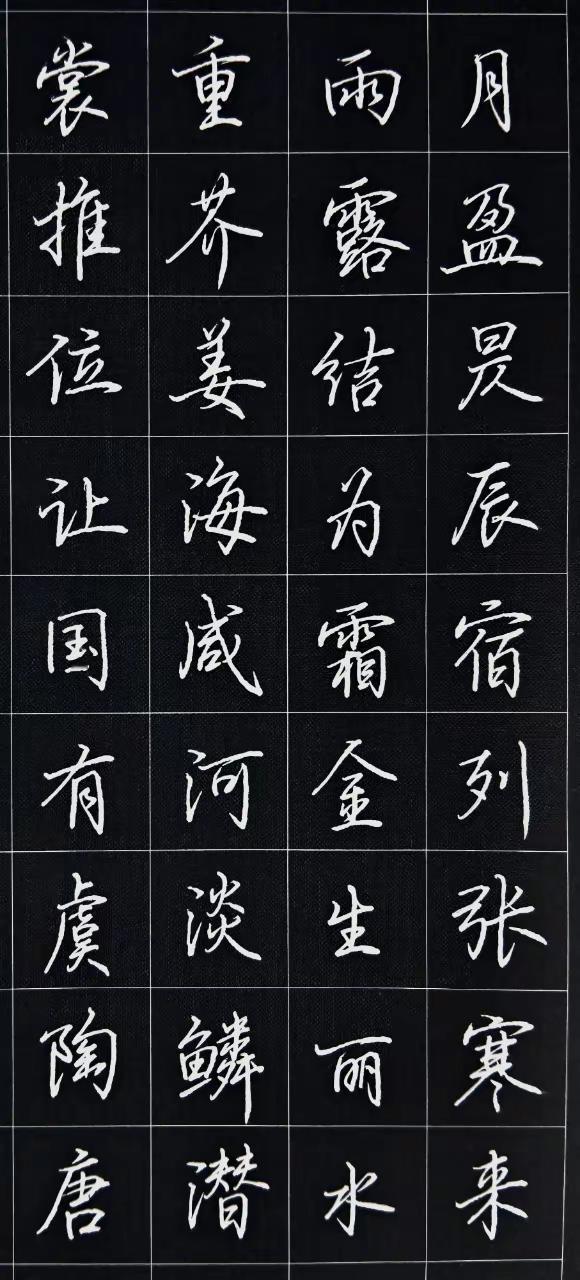 月盈昃辰宿列张寒来
雨露结为霜金生丽水
重芥姜海咸河淡鳞潜
裳推位让国有虞陶唐